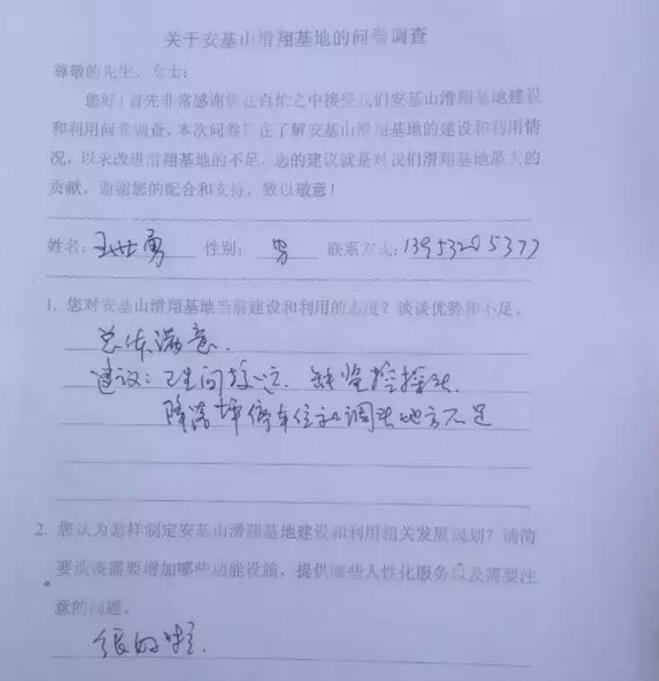 关于安基山滑翔基地的问卷调查
尊敬的先生、女士：
您好！首先非常感谢您在百忙之中接受我们安基山滑翔基地建设
和利用问卷调查。本次问卷旨在了解安基山滑翔基地的建设和利用情
况，以求改进滑翔基地的不足。您的建议就是对我们滑翔基地最大的
贡献。谢谢您的配合和支持，致以敬意！
姓名：王世勇 性别：男 联系方式：13953205377
1. 您对安基山滑翔基地当前建设和利用的态度？谈谈优势和不足。
总体满意.
建议：卫生间较远. 缺监控探头.
降落坪停车位和调头地方不足
2. 您认为怎样制定安基山滑翔基地建设和利用相关发展规划？请简
要谈谈需要增加哪些功能设施，提供哪些人性化服务以及需要注
意的问题。
很好